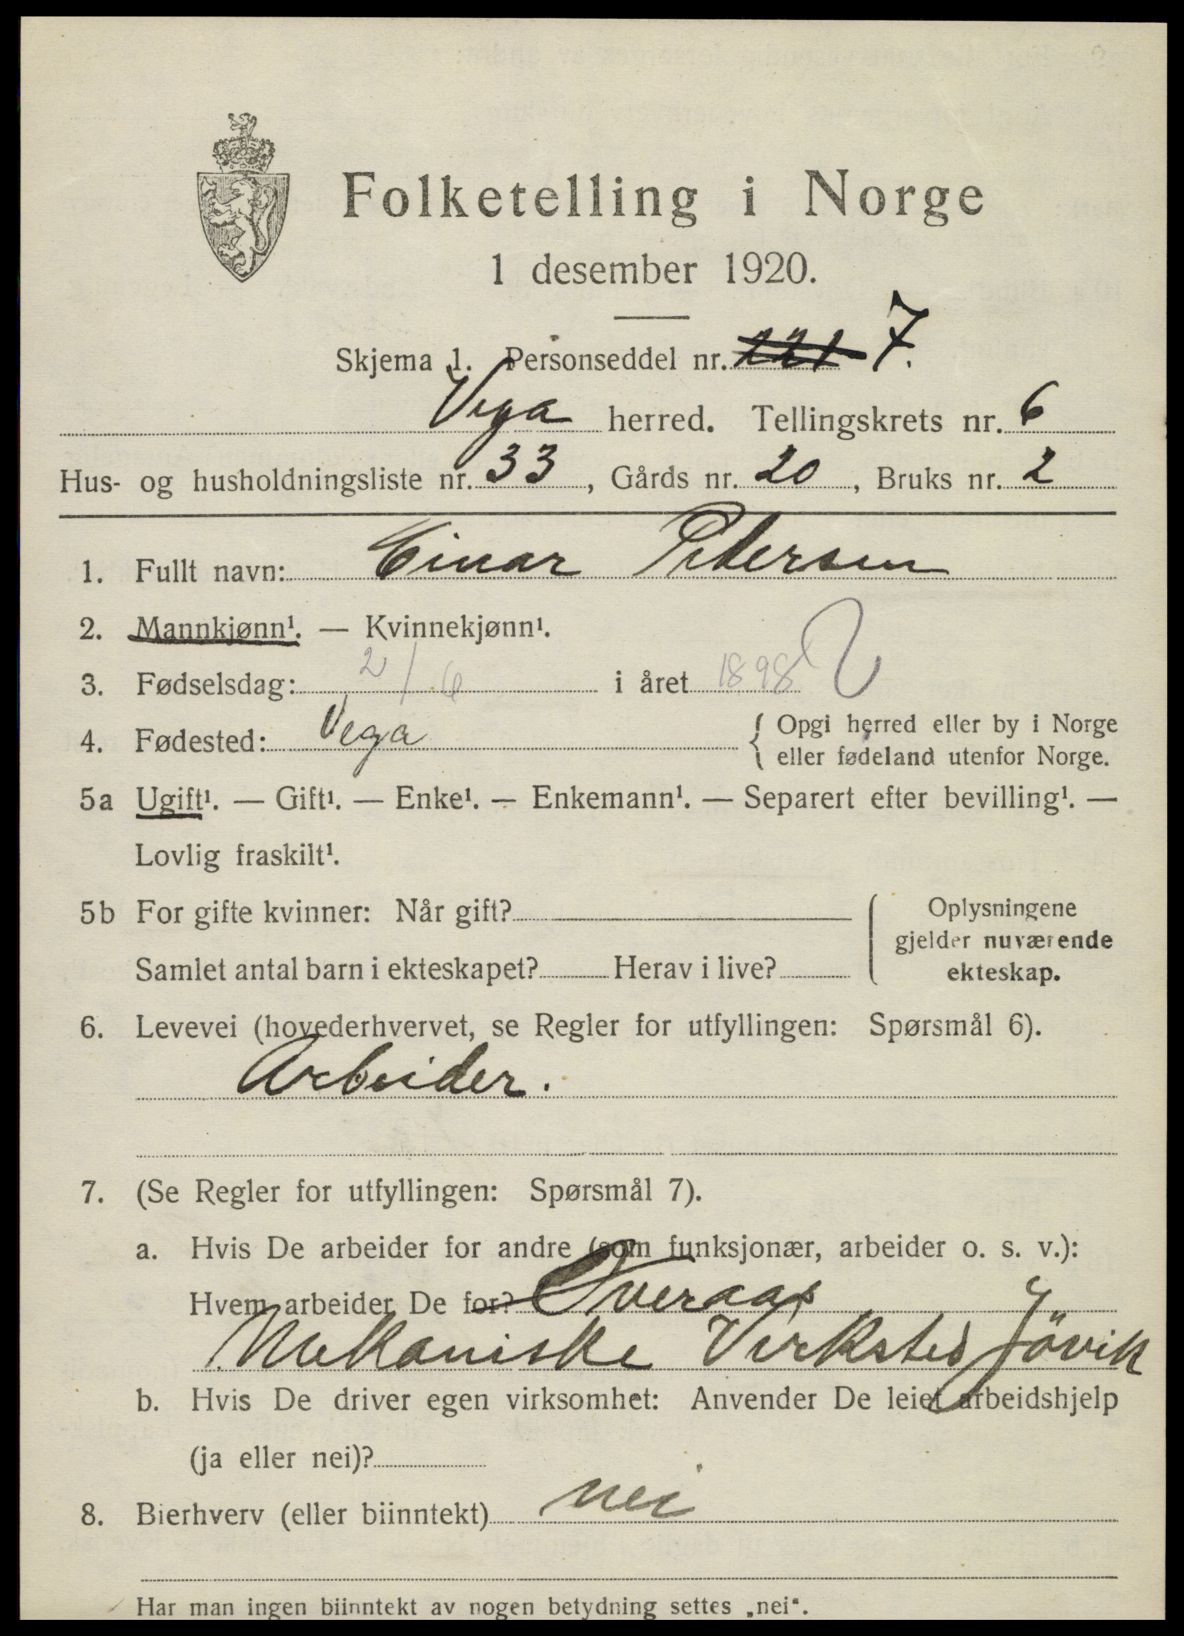 Folketelling i Norge
1 desember 1920.
Skjema 1. Personseddel nr. 121 7.
Vega herred. Tellingskrets nr. 6
Hus- og husholdningsliste nr. 33, Gårds nr. 20, Bruks nr. 2
1. Fullt navn: Einar Petersen
2. Mannkjønn¹. — Kvinnekjønn¹.
3. Fødselsdag: 2/6 i året 1898
4. Fødested: Vega { Opgi herred eller by i Norge
eller fødeland utenfor Norge.
5a Ugift¹. — Gift¹. — Enke¹. — Enkemann¹. — Separert efter bevilling¹. —
Lovlig fraskilt¹.
5b For gifte kvinner: Når gift?
Samlet antal barn i ekteskapet? Herav i live?
Oplysningene
gjelder nuværende
ekteskap.
6. Levevei (hovederhvervet, se Regler for utfyllingen: Spørsmål 6).
Arbeider.
7. (Se Regler for utfyllingen: Spørsmål 7).
a. Hvis De arbeider for andre (som funksjonær, arbeider o. s. v.):
Hvem arbeider De for? Overaas
Mekaniske Verksted Jövik
b. Hvis De driver egen virksomhet: Anvender De leiet arbeidshjelp
(ja eller nei)?
8. Bierhverv (eller biinntekt) nei
Har man ingen biinntekt av nogen betydning settes „nei“.